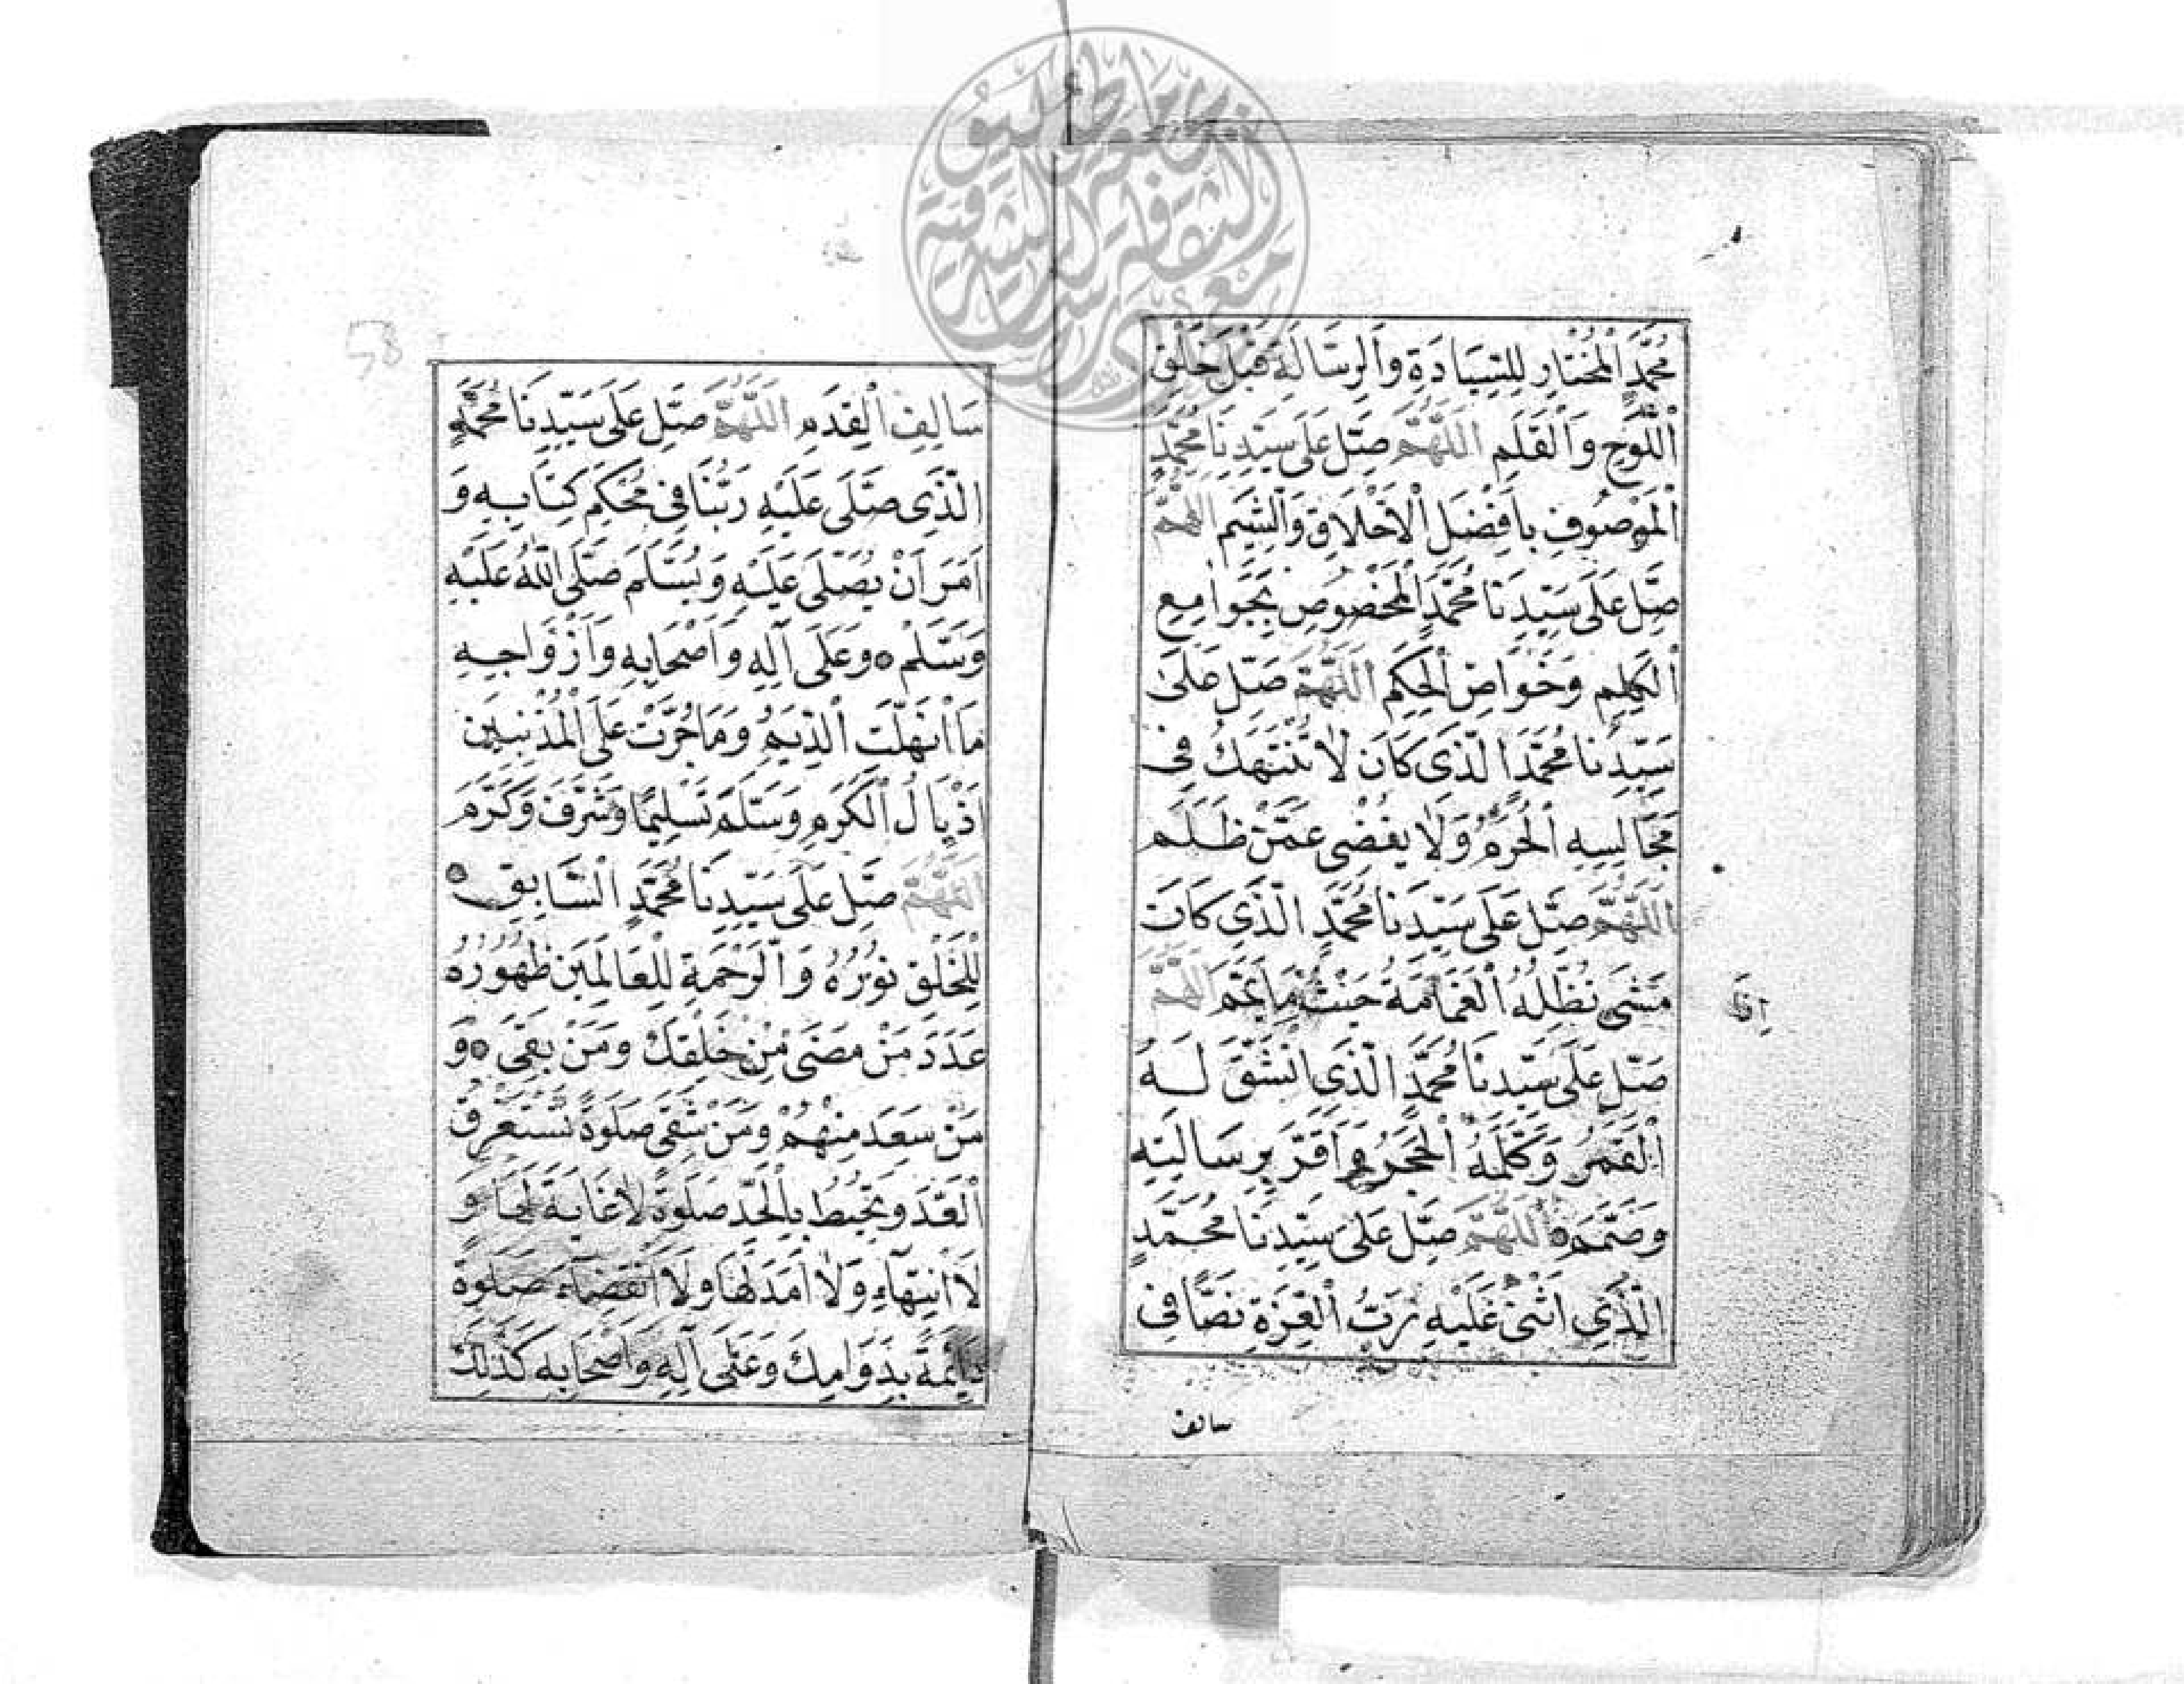 مُحَمَّدٍ الْمُخْتَارِ لِلسِّيَادَةِ وَالرِّسَالَةِ قَبْلَ خَلْقِ
اللَّوْحِ وَالْقَلَمِ اللَّهُمَّ صَلِّ عَلَى سَيِّدِنَا مُحَمَّدٍ
الْمَوْصُوفِ بِاَفْضَلِ الْاَخْلَاقِ وَالشِّيَمِ اللَّهُمَّ
صَلِّ عَلَى سَيِّدِنَا مُحَمَّدٍ الْمَخْصُوصِ بِجَوَامِعِ
الْكَلِمِ وَخَوَاصِّ الْحِكَمِ اللَّهُمَّ صَلِّ عَلَى
سَيِّدِنَا مُحَمَّدٍ الَّذِى كَانَ لَا تُنْتَهَكُ فِى
مَجَالِسِهِ الْحُرَمُ وَلَا يغْضِى عَمَّنْ ظَلَمَ
اللَّهُمَّ صَلِّ عَلَى سَيِّدِنَا مُحَمَّدٍ الَّذِى كَانَ
اِذَا
مَشَى تُظَلِّلُهُ الْغَمَامَةُ حَيْثُ مَا يَمَّمَ اللَّهُمَّ
صَلِّ عَلَى سَيِّدِنَا مُحَمَّدٍ الَّذِى انْشَقَّ لَهُ
الْقَمَرُ وَكَلَّمَهُ الْحَجَرُ وَاَقَرَّ بِرِسَالَتِهِ
وَصَمَّمَ اللَّهُمَّ صَلِّ عَلَى سَيِّدِنَا مُحَمَّدٍ
الَّذِى اَثْنَى عَلَيْهِ رَبُّ الْعِزَّةِ نَصًّا فِى
سالف
58
سَالِفِ الْقِدَمِ اللَّهُمَّ صَلِّ عَلَى سَيِّدِنَا مُحَمَّدٍ
الَّذِى صَلَّى عَلَيْهِ رَبُّنَا فِى مُحْكَمِ كِتَابِهِ وَ
اَمَرَ اَنْ يُصَلَّى عَلَيْهِ وَيُسَلَّمَ صَلَّى اللَّهُ عَلَيْهِ
وَسَلَّمْ وَعَلَى آلِهِ وَاَصْحَابِهِ وَاَزْوَاجِهِ
مَا انْهَلَّتِ الدِّيَمُ وَمَا جُرَّتْ عَلَى الْمُذْنِبِينَ
اَذْيَالُ الْكَرَمِ وَسَلَّمَ تَسْلِيمًا وَشَرَّفَ وَكَرَّمَ
اللَّهُمَّ صَلِّ عَلَى سَيِّدِنَا مُحَمَّدٍ السَّابِقِ
لِلْخَلْقِ نُورُهُ وَالرَّحْمَةِ لِلْعَالَمِينَ ظُهُورُهُ
عَدَدَ مَنْ مَضَى مِنْ خَلْقِكَ وَمَنْ بَقِىَ وَ
مَنْ سَعَدَ مِنْهُمْ وَمَنْ شَقِىَ صَلَوةً تَسْتَغْرِقُ
الْعَدَّ وَتُحِيطُ بِالْحَدِّ صَلَوةً لَا غَايَةَ لَهَا وَ
لَا انْتِهَاءَ وَلَا اَمَدَ لَهَا وَلَا انْقِضَاءَ صَلَوةً
دَائِمَةً بِدَوَامِكَ وَعَلَى آلِهِ وَاَصْحَابِهِ كَذَلِكَ